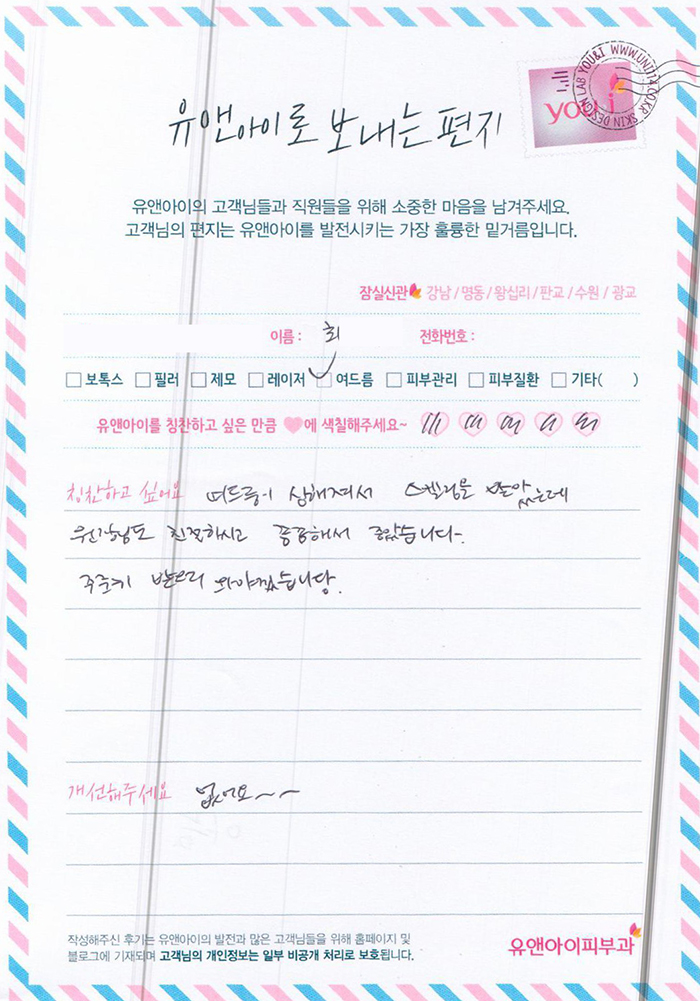 SKIN DESIGN LAB YOU&I WWW.UNI114.CO.KR
you i
유앤아이로 보내는 편지
유앤아이의 고객님들과 직원들을 위해 소중한 마음을 남겨주세요.
고객님의 편지는 유앤아이를 발전시키는 가장 훌륭한 밑거름입니다.
잠실신관 강남 / 명동 / 왕십리 / 판교 / 수원 / 광교
이름 : 희 전화번호 :
보톡스 필러 제모 레이저 여드름 피부관리 피부질환 기타( )
유앤아이를 칭찬하고 싶은 만큼 ♥에 색칠해주세요~
칭찬하고 싶어요 여드름이 심해져서 스켈링을 받았는데
원장님도 친절하시고 꼼꼼해서 좋았습니다.
꾸준히 받으러 와야겠습니당.
개선해주세요 없어요~~
작성해주신 후기는 유앤아이의 발전과 많은 고객님들을 위해 홈페이지 및
블로그에 기재되며 고객님의 개인정보는 일부 비공개 처리로 보호됩니다.
유앤아이피부과